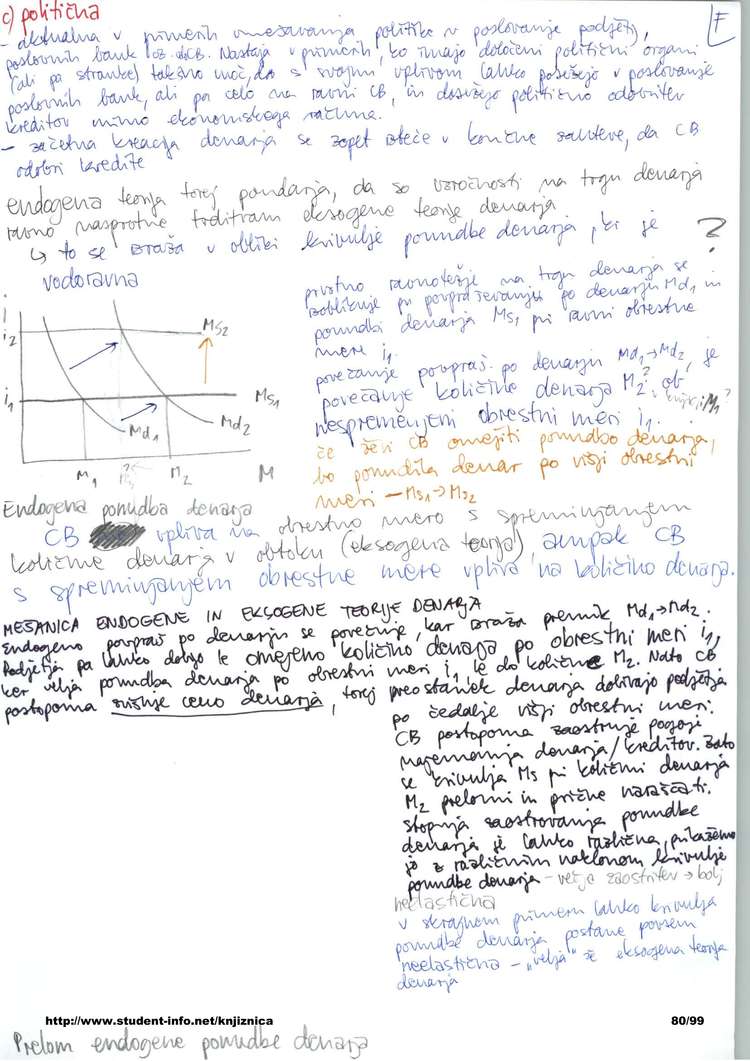 c) politična
F
- aktualna v primerih vmešavanja politike v poslovanje podjetij,
poslovnih bank oz. CB. Nastaja v primerih, ko imajo določeni politični organi
(ali pa stranke) takšno moč, da s svojim vplivom lahko posežejo v poslovanje
poslovnih bank, ali pa celo na ravni CB, in dosežejo politično odobritev
kreditov mimo ekonomskega računa.
- začetna kreacija denarja se zopet izteče v končne zahteve, da CB
odobri kredite
endogena teorija torej poudarja, da so vzročnosti na trgu denarja
ravno nasprotne trditvam eksogene teorije denarja
↳ to se izraža v obliki krivulje ponudbe denarja, ki je ?
vodoravna
prvotno ravnotežje na trgu denarja se
izoblikuje pri povpraševanju po denarju Md1 in
ponudbi denarja Ms1 pri ravni obrestne
mere i1.
povečanje povpraš. po denarju Md1→Md2, je
povečanje količine denarja M2, ob
nespremenjeni obrestni meri i1.
če želi CB omejiti ponudbo denarja,
bo ponudila denar po višji obrestni
meri - Ms1→Ms2
i
i2
i1
Ms2
Ms1
Md1
Md2
M1
M2
M
Endogena ponudba denarja
CB vpliva na obrestno mero s spreminjanjem
količine denarja v obtoku (eksogena teorija), ampak CB
s spreminjanjem obrestne mere vpliva na količino denarja.
MEŠANICA ENDOGENE IN EKSOGENE TEORIJE DENARJA
Endogeno povpraš po denarju se povečuje, kar izraža premik Md1→Md2.
Podjetja pa lahko dobijo le omejeno količino denarja po obrestni meri i1,
ker velja ponudba denarja po obrestni meri i1 le do količine M2. Nato CB
postopoma zvišuje ceno denarja, torej preostanek denarja dobivajo podjetja
po čedalje višji obrestni meri.
CB postopoma zaostruje pogoje
najemanja denarja/kreditov. Zato
se krivulja Ms pri količini denarja
M2 prelomi in prične naraščati.
Stopnja zaostrovanja ponudbe
denarja je lahko različna, prikažemo
jo z različnim naklonom krivulje
ponudbe denarja - večja zaostritev → bolj
neelastična
v skrajnem primeru lahko krivulja
ponudbe denarja postane povsem
neelastična - "velja" že eksogena teorija
denarja
http://www.student-info.net/knjiznica
80/99
Prelom endogene ponudbe denarja